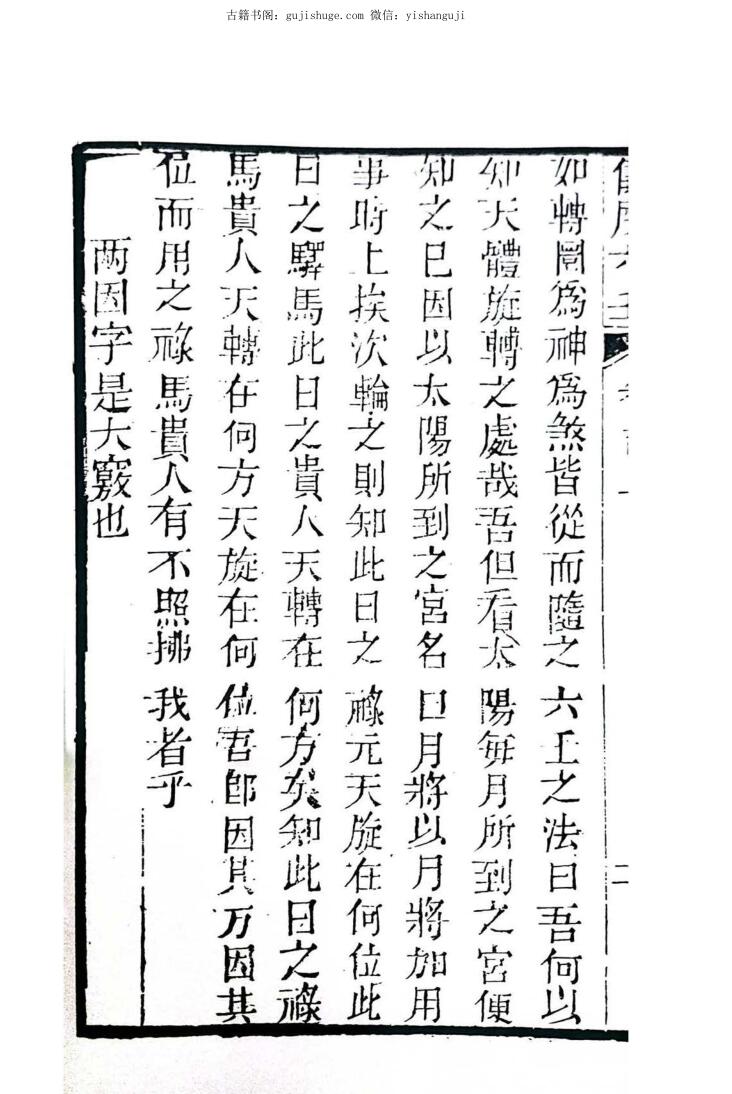 古籍书阁：gujishuge.com 微信：yishanguji
如轉圜為神為煞皆從而隨之六壬之法曰吾何以
知天體旋轉之處哉吾但看太陽每月所到之宮便
知之已因以太陽所到之宮名曰月將以月將加用
事時上挨次輪之則知此日之祿元天旋在何位此
日之驛馬此日之貴人天轉在何方矣知此日之祿
馬貴人天轉在何方天旋在何位吾即因其方因其
位而用之祿馬貴人有不照拂我者乎
两因字是大竅也